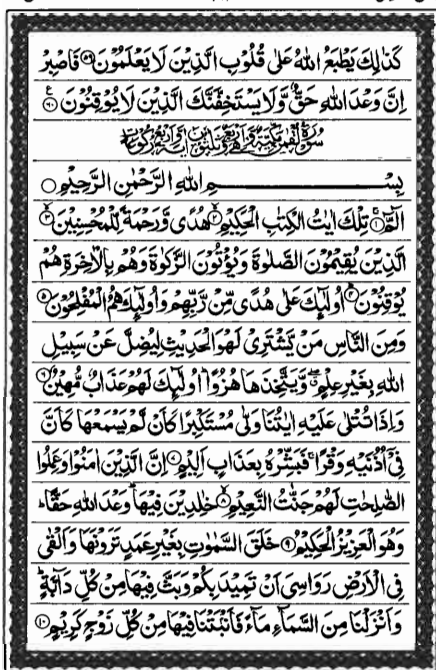 كَذٰلِكَ يَطْبَعُ اللهُ عَلٰى قُلُوْبِ الَّذِيْنَ لَا يَعْلَمُوْنَ ۝۵۹ فَاصْبِرْ
اِنَّ وَعْدَ اللهِ حَقٌّ وَّلَا يَسْتَخِفَّنَّكَ الَّذِيْنَ لَا يُوْقِنُوْنَ ۝۶۰
بِسْمِ اللهِ الرَّحْمٰنِ الرَّحِيْمِ
الٓمّٓ ۝۱ تِلْكَ اٰيٰتُ الْكِتٰبِ الْحَكِيْمِ ۝۲ هُدًى وَّرَحْمَةً لِّلْمُحْسِنِيْنَ ۝۳
الَّذِيْنَ يُقِيْمُوْنَ الصَّلٰوةَ وَيُؤْتُوْنَ الزَّكٰوةَ وَهُمْ بِالْاٰخِرَةِ هُمْ
يُوْقِنُوْنَ ۝۴ اُولٰٓئِكَ عَلٰى هُدًى مِّنْ رَّبِّهِمْ وَاُولٰٓئِكَ هُمُ الْمُفْلِحُوْنَ ۝۵
وَمِنَ النَّاسِ مَنْ يَّشْتَرِيْ لَهْوَ الْحَدِيْثِ لِيُضِلَّ عَنْ سَبِيْلِ
اللهِ بِغَيْرِ عِلْمٍ وَّيَتَّخِذَهَا هُزُوًا اُولٰٓئِكَ لَهُمْ عَذَابٌ مُّهِيْنٌ ۝۶
وَاِذَا تُتْلٰى عَلَيْهِ اٰيٰتُنَا وَلّٰى مُسْتَكْبِرًا كَاَنْ لَّمْ يَسْمَعْهَا كَاَنَّ
فِيْٓ اُذُنَيْهِ وَقْرًا فَبَشِّرْهُ بِعَذَابٍ اَلِيْمٍ ۝۷ اِنَّ الَّذِيْنَ اٰمَنُوْا وَعَمِلُوا
الصّٰلِحٰتِ لَهُمْ جَنّٰتُ النَّعِيْمِ ۝۸ خٰلِدِيْنَ فِيْهَا وَعْدَ اللهِ حَقًّا
وَهُوَ الْعَزِيْزُ الْحَكِيْمُ ۝۹ خَلَقَ السَّمٰوٰتِ بِغَيْرِ عَمَدٍ تَرَوْنَهَا وَاَلْقٰى
فِي الْاَرْضِ رَوَاسِيَ اَنْ تَمِيْدَ بِكُمْ وَبَثَّ فِيْهَا مِنْ كُلِّ دَآبَّةٍ
وَاَنْزَلْنَا مِنَ السَّمَآءِ مَآءً فَاَنْۢبَتْنَا فِيْهَا مِنْ كُلِّ زَوْجٍ كَرِيْمٍ ۝۱۰